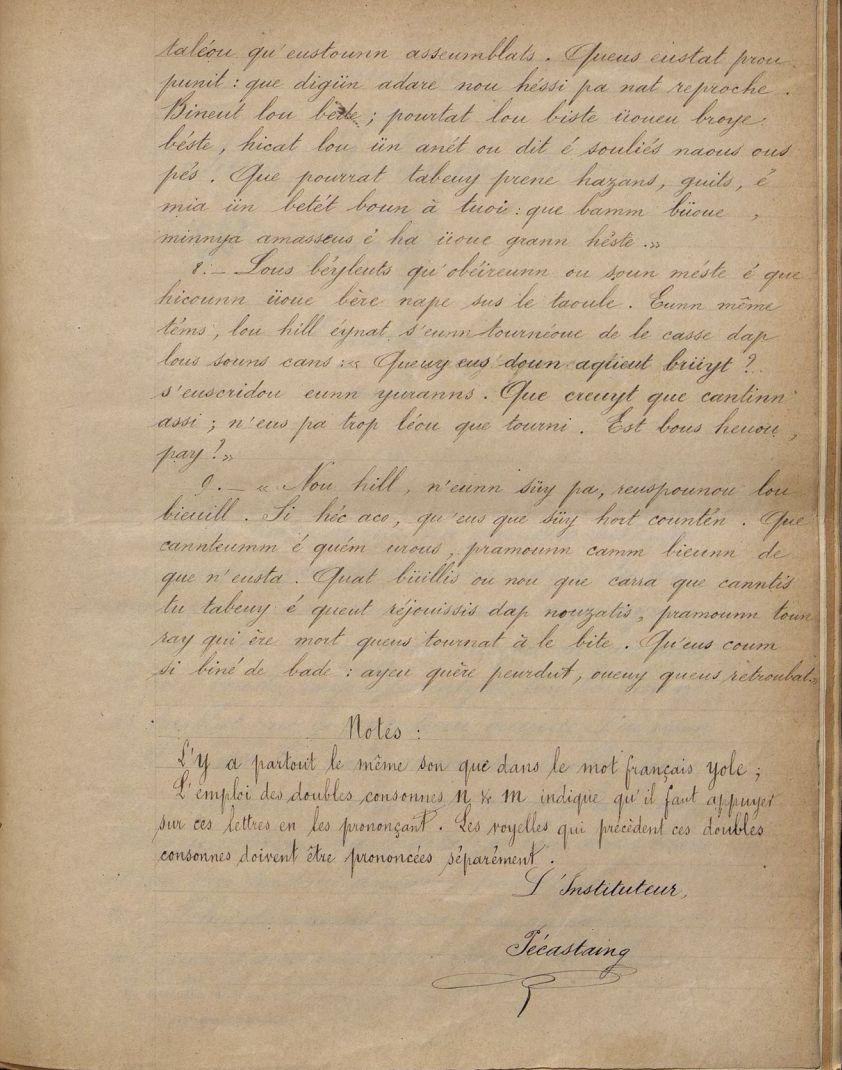 taléou qu'eustounn asseumblats. Queus eustat prou
punit : que digün adare nou héssi pa nat reproche.
Bineut lou bede ; pourtat lou biste üoueu broye
béste, hicat lou ün anét ou dit é souliés naous ous
pés. Que pourrat tabeuy prene hazans, guits, é
mia ün betét boun à tuoi : que bamm büoue,
minnya amasseus é ha üoue grann héste. »
8. — Lous béyleuts qu'obéireunn ou soun méste é que
hicounn üoue bère nape sus le taoule. Eunn même
téms, lou hill éynat s'eunn tournéoue de le casse dap
lous souns cans : « Queuy eus doun aqueut brüyt ?
s'euscridou eunn yuranns. Que creuyt que cantinn
assi ; n'eus pa trop léou que tourni. Est bous heuou,
pay ? »
9. — « Nou hill, n'eunn süy pa, reuspounou lou
bieuill. Si héc aco, qu'eus que süy hort countén. Que
cannteumm é quém urous, pramounn camm bieunn de
que n'eusta. Quat büillis ou nou que carra que canntis
tu tabeuy é queut réjouissis dap nouzatis, pramounn toun
ray qui ère mort queus tournat à le bite. Qu'eus coum
si biné de bade : ayeu quère peurdut, oueuy queus retroubat. »
Notes :
L'y a partout le même son que dans le mot français yole ;
L'emploi des doubles consonnes N & M indique qu'il faut appuyer
sur ces lettres en les prononçant. Les voyelles qui précèdent ces doubles
consonnes doivent être prononcées séparément.
L'Instituteur,
Pécastaing